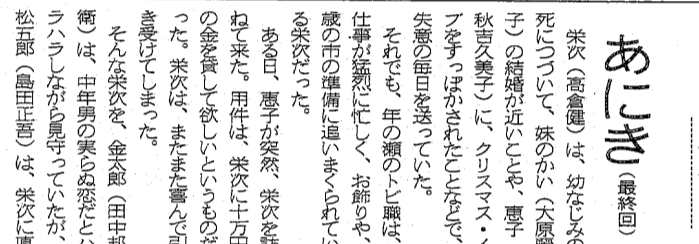 あにき(最終回)
栄次(高倉健)は、幼なじみの
死につづいて、妹のかい(大原麗
子)の結婚が近いことや、恵子(
秋吉久美子)に、クリスマス・イ
ブをすっぽかされたことなどで、
失意の毎日を送っていた。
それでも、年の瀬のトビ職は、
仕事が猛烈に忙しく、お飾りや、
歳の市の準備に追いまくられてい
る栄次だった。
ある日、恵子が突然、栄次を訪
ねて来た。用件は、栄次に十万円
の金を貸して欲しいというものだ
った。栄次は、またまた喜んで引
き受けてしまった。
そんな栄次を、金太郎(田中邦
衛)は、中年男の実らぬ恋だとハ
ラハラしながら見守っていたが、
松五郎(島田正吾)は、栄次に